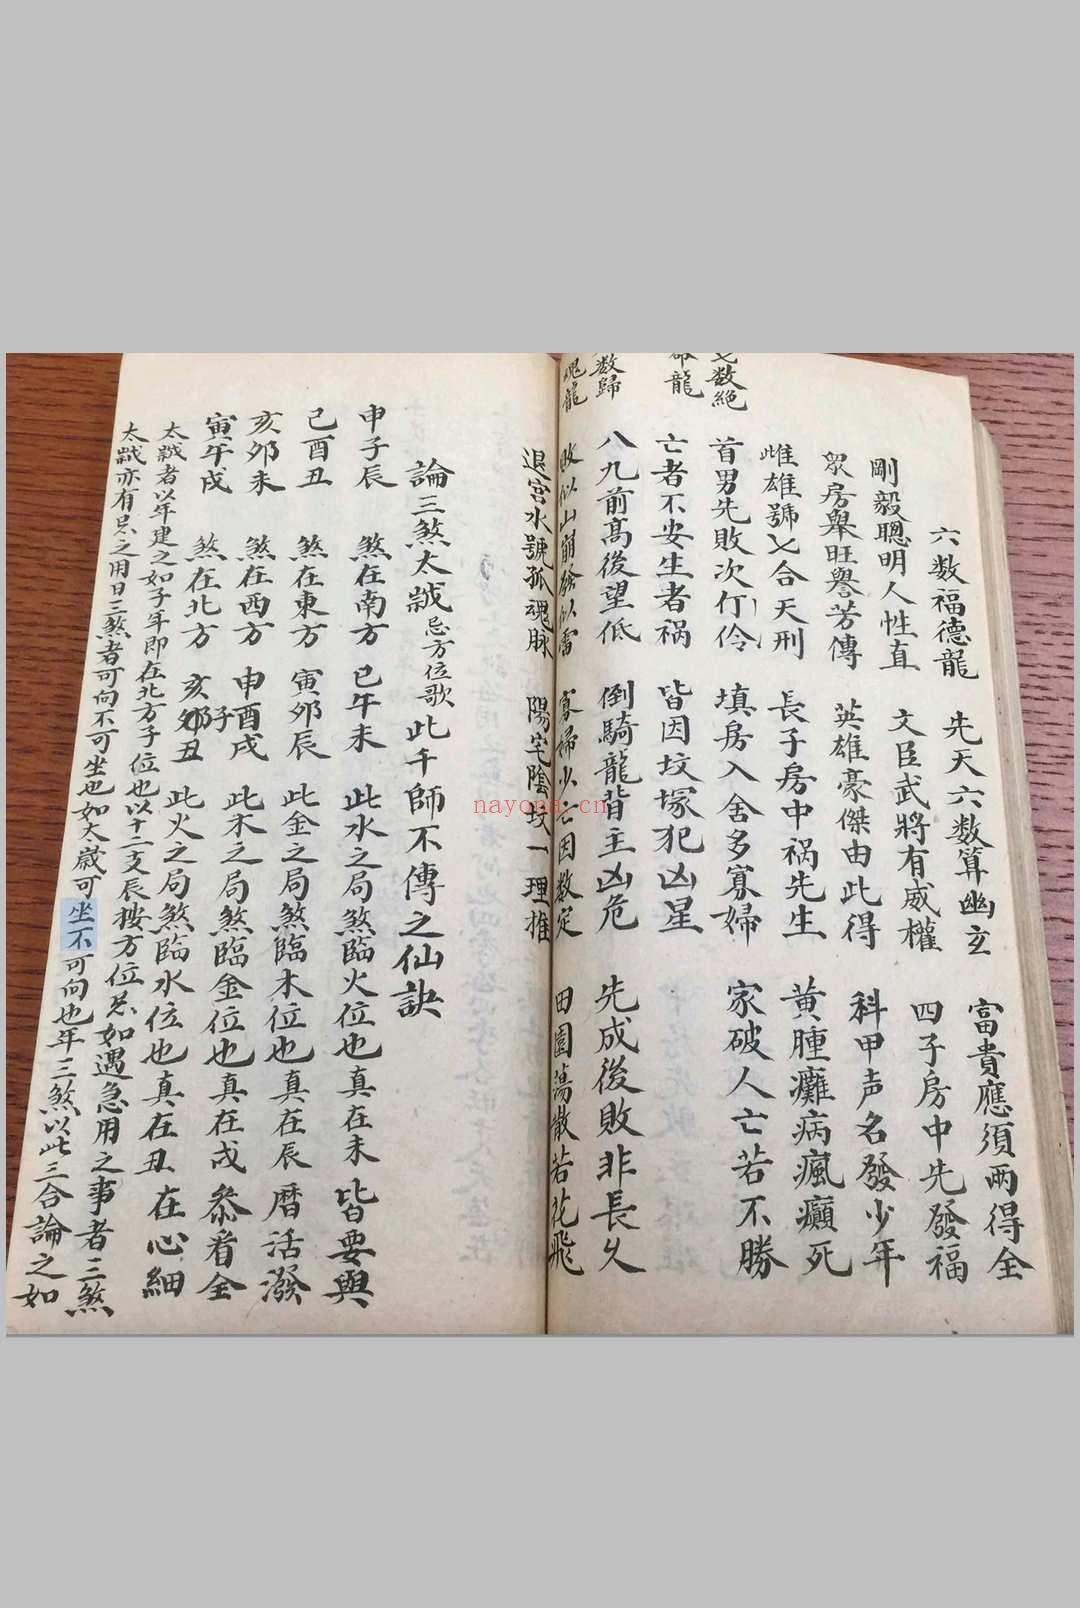 六数福德龍 先天六数算幽玄 富貴應須两得全
剛毅聰明人性直 文臣武將有威權 四子房中先發福
衆房舉旺譽芳傳 英雄豪傑由此得 科甲声名發少年
七数絶
命龍
雌雄號七合天刑 長子房中祸先生 黄腫癱病瘋癲死
首男先敗次仃伶 填房入舍多寡婦 家破人亡若不勝
亡者不安生者祸 皆因坟塚犯凶星
数歸
魂龍
八九前高後望低 倒騎龍背主凶危 先成後敗非長久
敗似山崩 似雷 寡婦少亡因数定 田園蕩散若花飛
退宫水號孤魂脉 陽宅陰坟一理推
論三煞太歲忌方位歌此千師不傳之仙訣
申子辰 煞在南方 巳午未 此水之局煞臨火位也真在未 皆要與
己酉丑 煞在東方 寅夘辰 此金之局煞臨木位也真在辰 曆活潑
亥夘未 煞在西方 申酉戌 此木之局煞臨金位也真在戌 叅看全
寅午戌 煞在北方 亥子丑 此火之局煞臨水位也真在丑 在心細
太歲者以年建之如子年即在北方子位也以十二支辰按方位忌如遇急用之事者三煞
太歲亦有忌之用日三煞者可向不可坐也如太歲可坐不可向也年三煞以此三合論之如
nayona.cn